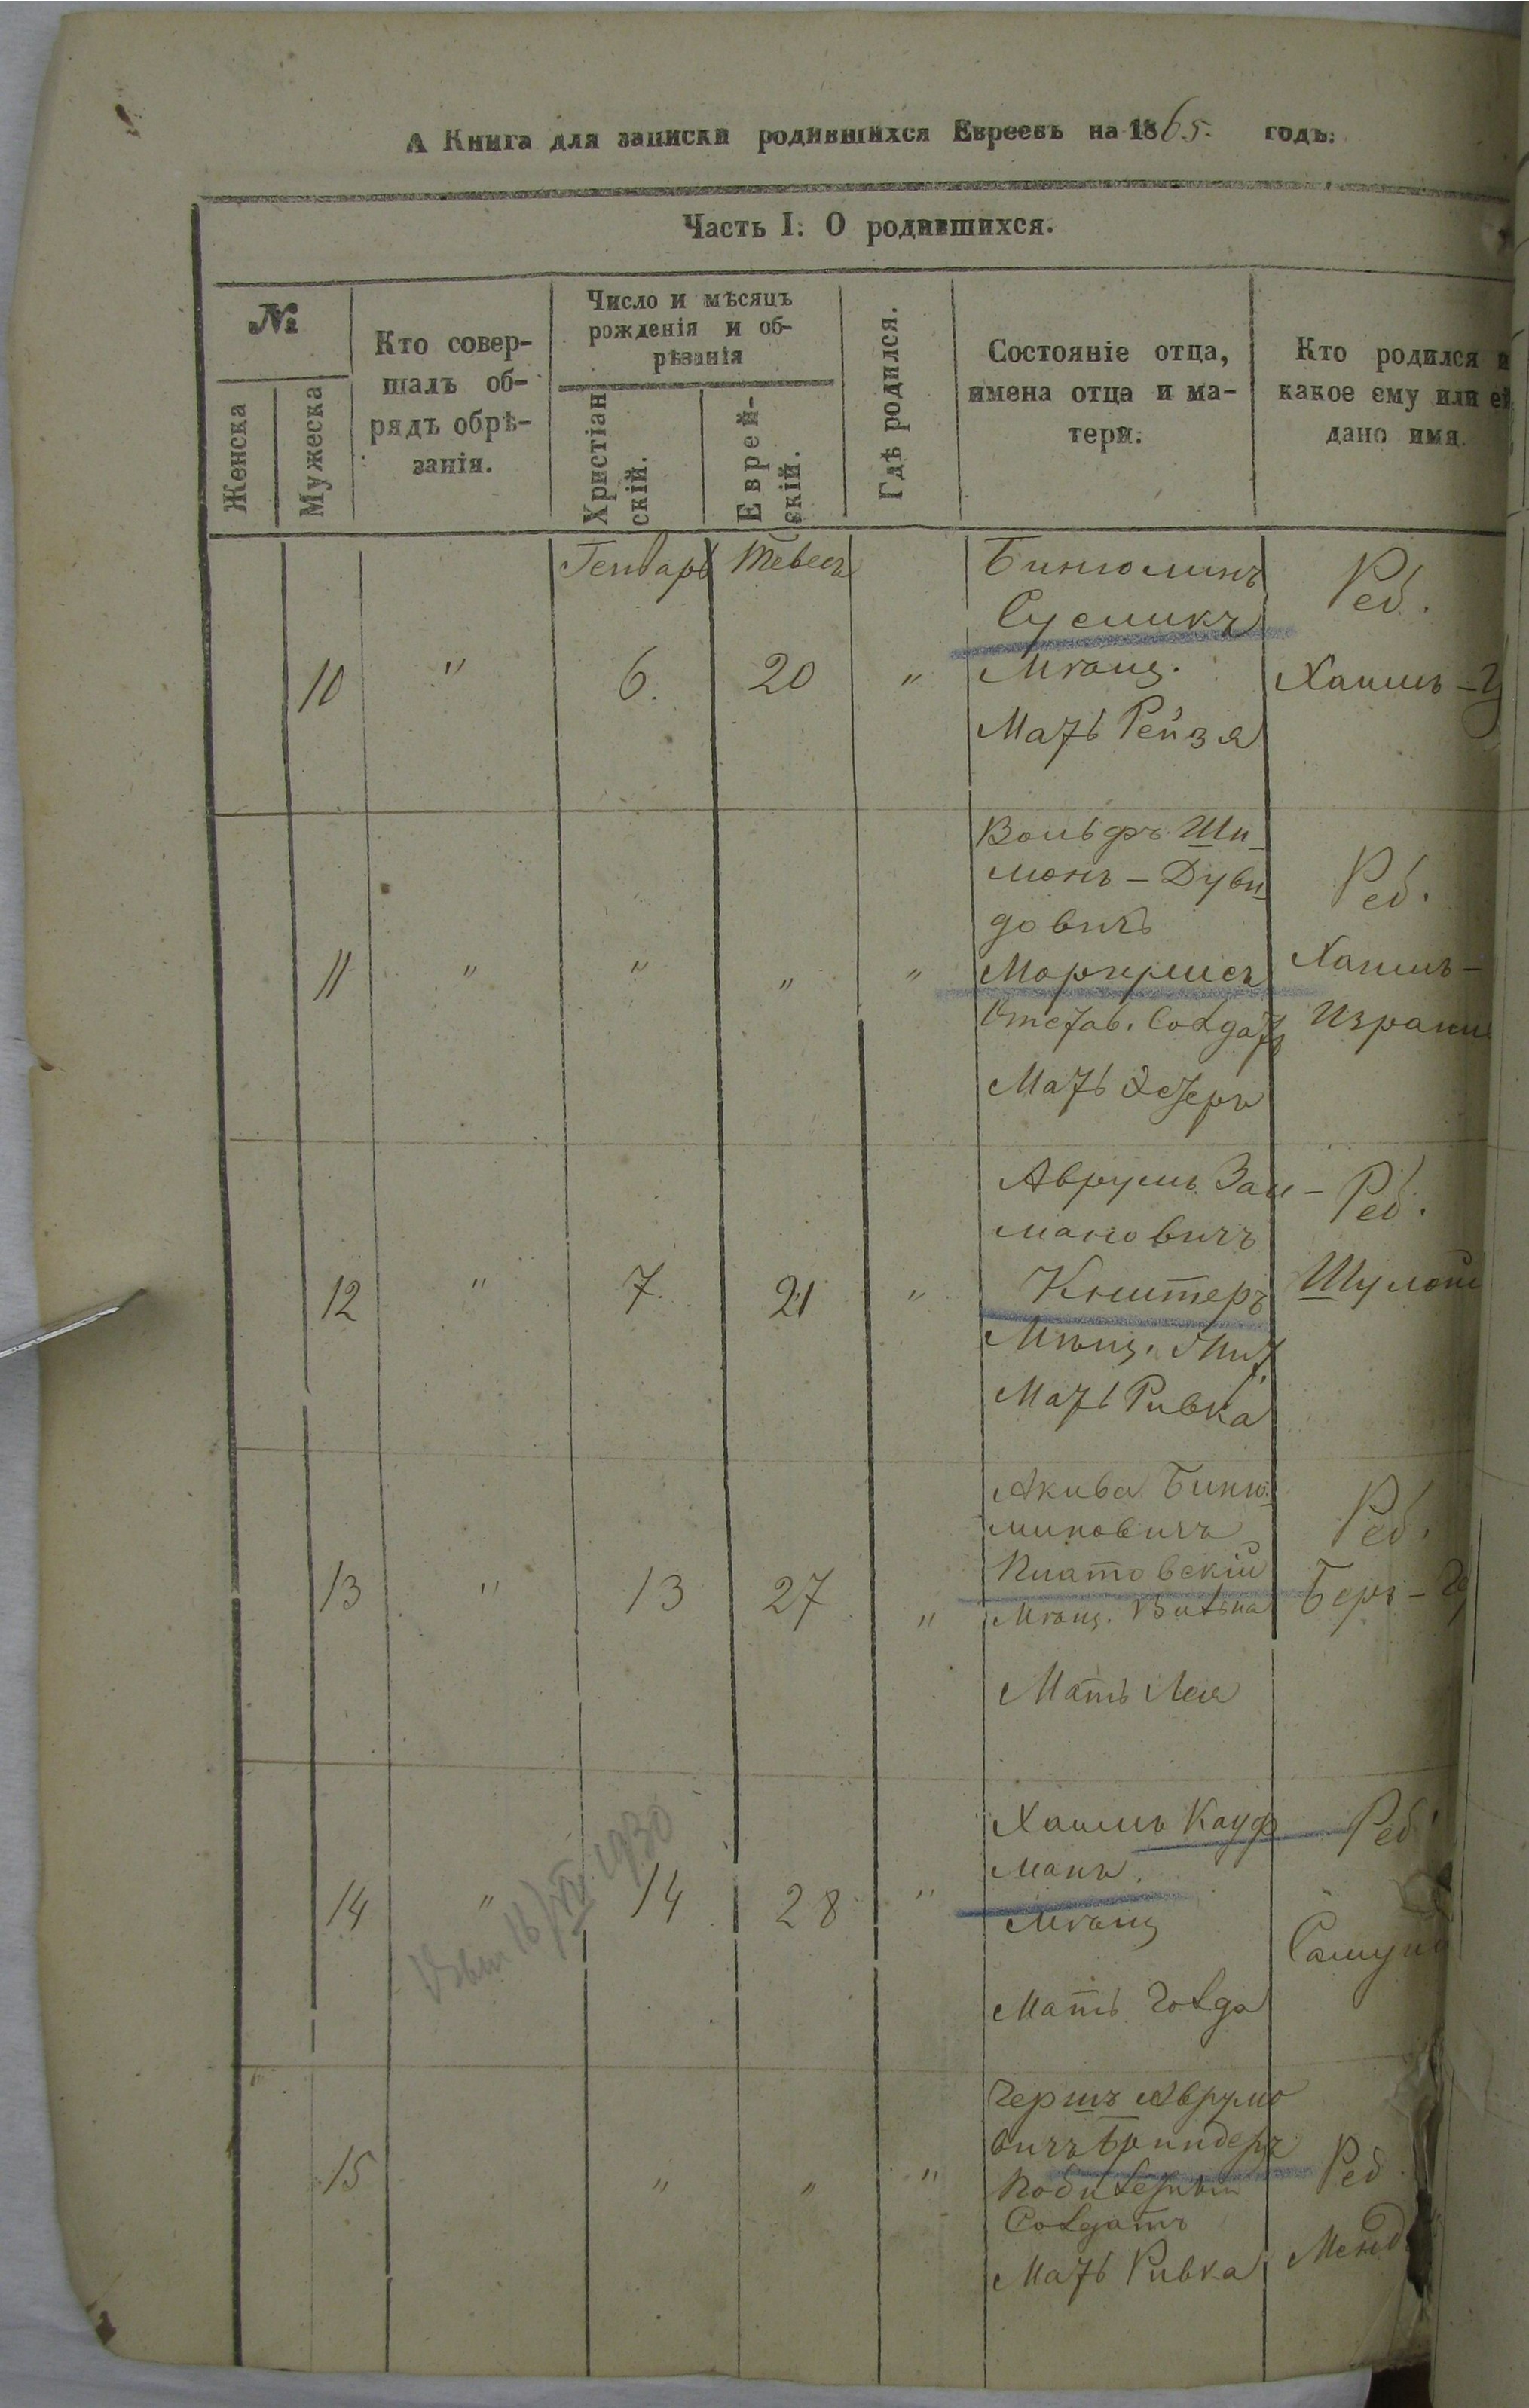 А Книга для записки родившихся Евреевъ на 1865. годъ.
Часть I. О родившихся.
№
Женска
Мужеска
Кто совер-
шалъ об-
рядъ обрѣ-
занія.
Число и мѣсяцъ
рожденія и об-
рѣзанія
Христіан
скій.
Еврей-
скій.
Гдѣ родился.
Состояніе отца,
имена отца и ма-
тери.
Кто родился и
какое ему или ей
дано имя.
Генварь
Тевесъ
10
"
6.
20
"
Биньоминъ
Сусмикъ
Мѣщ.
Мать Рейзя
Реб.
Хаимъ -
11
"
"
"
"
Вольфъ Ши-
монъ - Дуви
довичъ
Маргулисъ
Отстав. Солдатъ
Мать Эстеръ
Реб.
Хаимъ -
Израиль
12
"
7.
21
"
Аврумъ Зал-
мановичъ
Мѣщ.
Мать Ривка
Реб.
13
"
13
27
"
Акива Биню-
миновичъ
Мѣщ.
Мать Лея
Реб.
Беръ -
14
"
14
28
"
Хаимъ Кауф
манъ.
Мѣщ
Мать Голда
Реб.
16/IV 1930
15
"
"
"
Гершъ Аврумо
вичъ
Солдатъ
Мать Ривка
Реб.